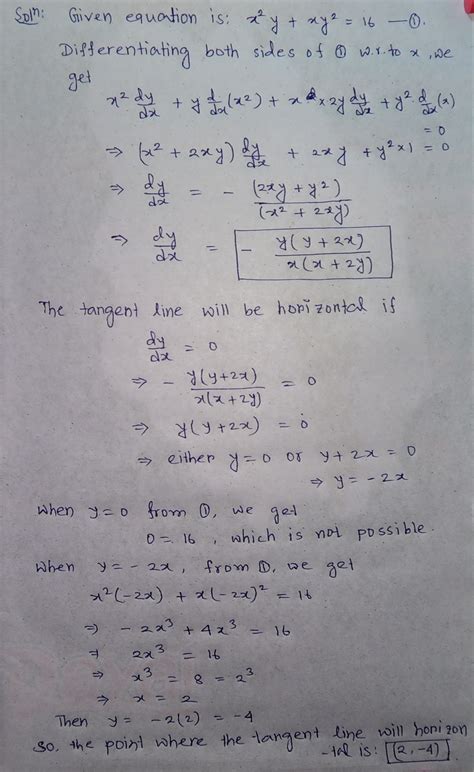 Solⁿ: Given equation is: x²y + xy² = 16 —①.
Differentiating both sides of ① w.r.to x, we
get
x² dy/dx + y d/dx(x²) + x × 2y dy/dx + y² d/dx(x)
= 0
⇒ (x² + 2xy) dy/dx + 2xy + y²×1 = 0
⇒ dy/dx = - (2xy + y²)/(x² + 2xy)
⇒ dy/dx = - y(y + 2x)/x(x + 2y)
The tangent line will be horizontal if
dy/dx = 0
⇒ - y(y+2x)/x(x+2y) = 0
⇒ y(y+2x) = 0
⇒ either y=0 or y+2x = 0
⇒ y = -2x
When y=0 from ①, we get
0 = 16, which is not possible.
When y = -2x, from ①, we get
x²(-2x) + x(-2x)² = 16
⇒ -2x³ + 4x³ = 16
⇒ 2x³ = 16
⇒ x³ = 8 = 2³
⇒ x = 2
Then y = -2(2) = -4
So, the point where the tangent line will horizon
-tal is: (2,-4)